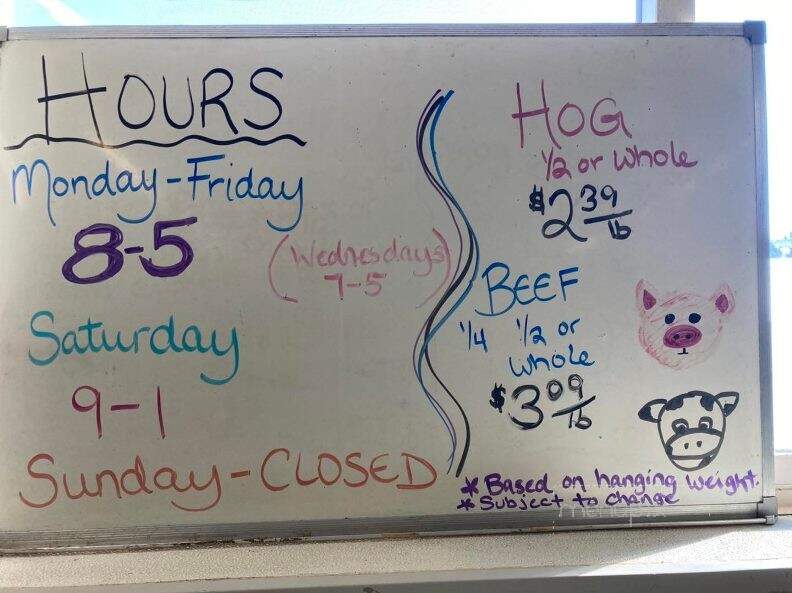 HOURS
Monday-Friday
8-5
(Wednesdays
7-5)
Saturday
9-1
Sunday-CLOSED
HOG
1/2 or Whole
$2 39/lb
BEEF
1/4 1/2 or
whole
$3 09/lb
* Based on hanging weight.
* Subject to change